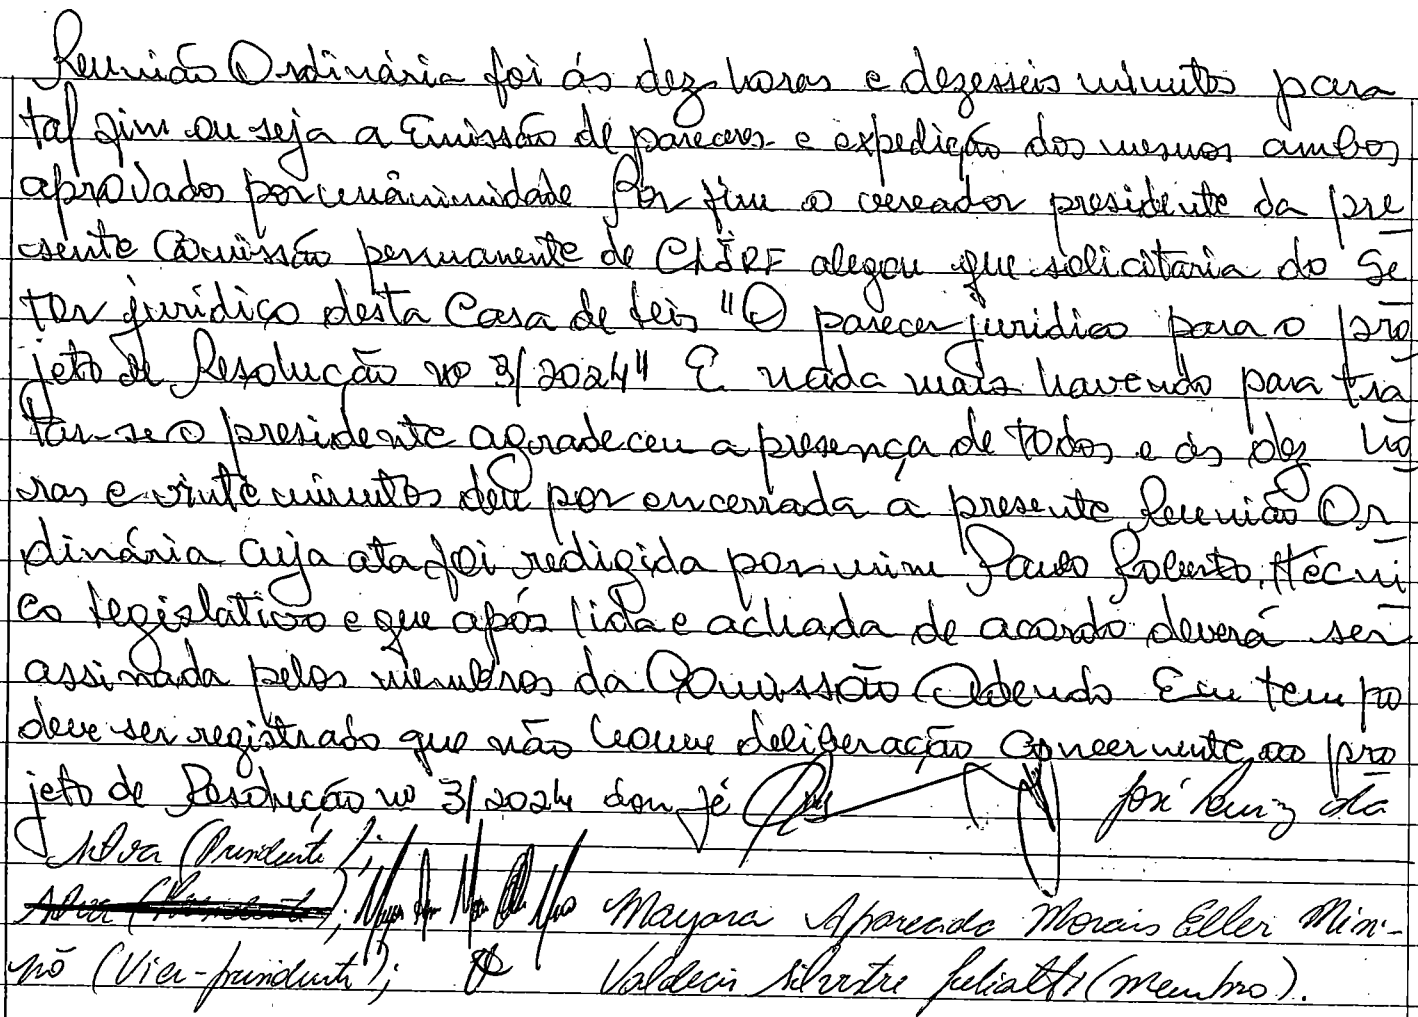 Reunião Ordinária foi ás dez horas e dezesseis minutos para
tal fim ou seja a Emissão de pareceres e expedição dos mesmos ambos
aprovados por unânimidade Por fim o vereador presidente da pre
sente Comissão permanente de CLJRF alegou que solicitaria do Se
tor jurídico desta Casa de Leis "O parecer jurídico para o pro
jeto de Resolução nº 3/2024" E nada mais havendo para tra
tar-se o presidente agradeceu a presença de todos e ás dez ho
ras e vinte minutos deu por encerrada a presente Reunião Or
dinária cuja ata foi redigida por mim Paulo Roberto, técni
co legislativo e que após lida e achada de acordo deverá ser
assinada pelos membros da Comissão Adendo Em tempo
deve ser registrado que não houve deliberação concernente ao pro
jeto de Resolução nº 3/2024 dou fé José Luiz da
Silva (Presidente);
Mayara Aparecida Morais Eller Mini-
nô (Vice-presidente); Valdecir Silvestre (membro).